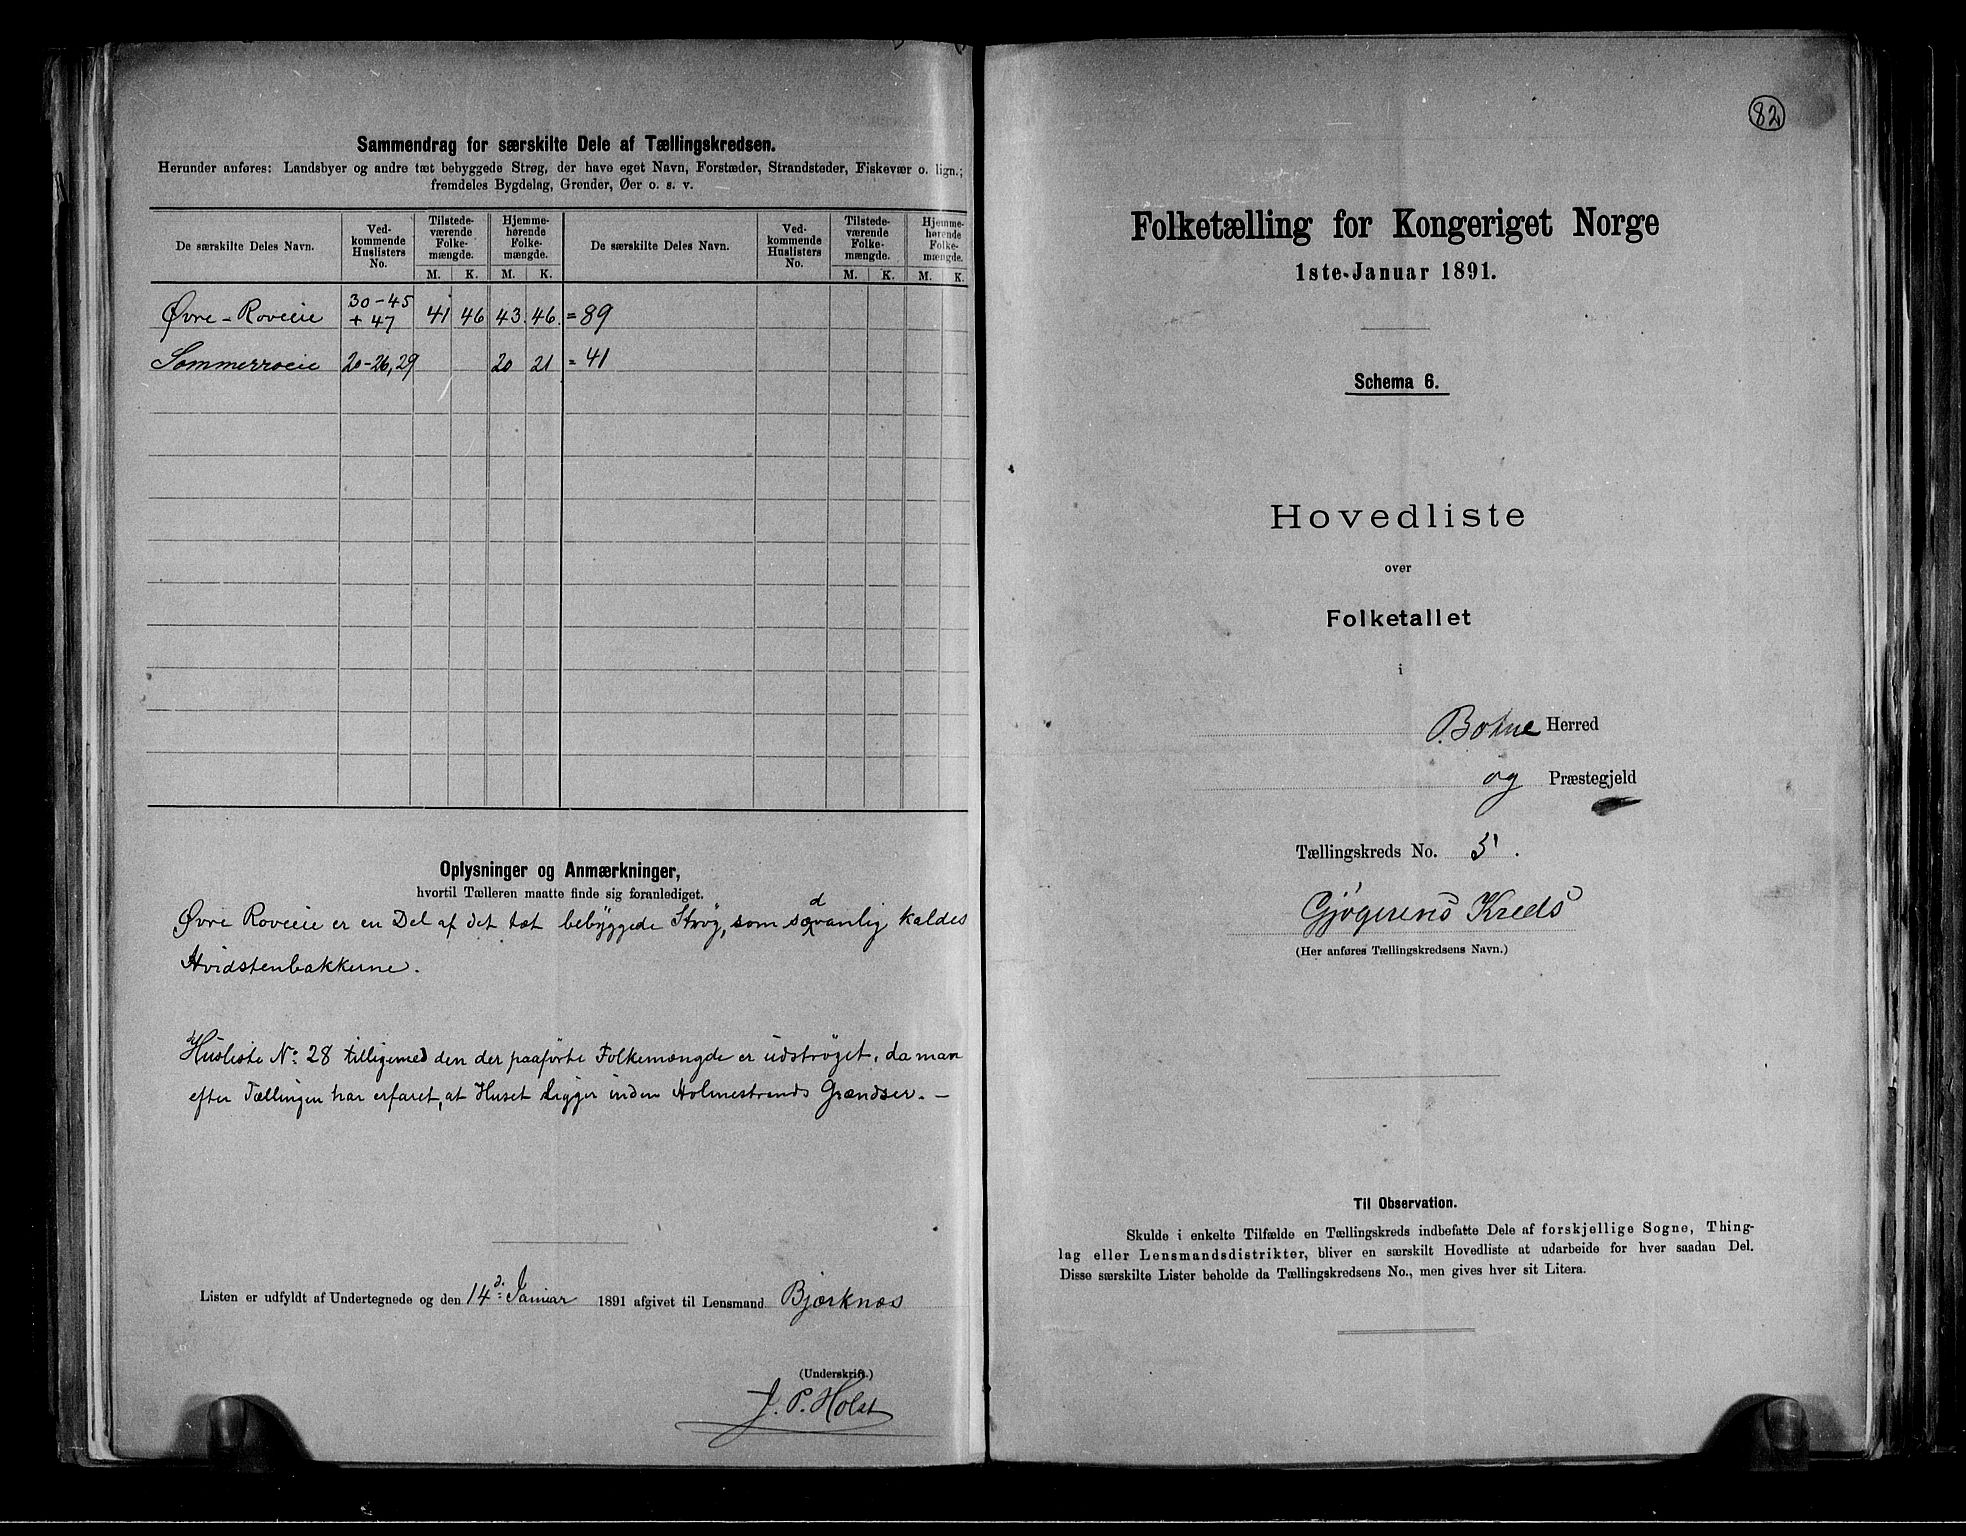 Sammendrag for særskilte Dele af Tællingskredsen.
Herunder anføres: Landsbyer og andre tæt bebyggede Strøg, der have eget Navn, Forstæder, Strandsteder, Fiskevær o. lign.;
fremdeles Bygdelag, Grender, Øer o. s. v.
De særskilte Deles Navn. Ved-kommende Huslisters No. Tilstede-værende Folke-mængde. Hjemme-hørende Folke-mængde. De særskilte Deles Navn. Ved-kommende Huslisters No. Tilstede-værende Folke-mængde. Hjemme-hørende Folke-mængde.
M. K. M. K. M. K. M. K.
Øvre-Roveie 30-45 + 47 41 46 43. 46. = 89
Sommerroeie 20-26,29 20 21 = 41
Oplysninger og Anmærkninger,
hvortil Tælleren maatte finde sig foranlediget.
Øvre Roveie er en Del af det tæt bebyggede Strøg, som sædvanlig kaldes
Hvidstenbakkerne.
Husliste No. 28 tilligemed den der paaførte Folkemængde er udstrøget, da man
efter Tællingen har erfaret, at Huset ligger inden Holmestrands Grændser. –
Listen er udfyldt af Undertegnede og den 14d. Januar 1891 afgivet til Lensmand Bjærknæs
(Underskrift.)
J. P. Holst
82
Folketælling for Kongeriget Norge
1ste-Januar 1891.
Schema 6.
Hovedliste
over
Folketallet
i
Botne Herred
og Præstegjeld
Tællingskreds No. 5.
Gjøgerens Kreds
(Her anføres Tællingskredsens Navn.)
Til Observation.
Skulde i enkelte Tilfælde en Tællingskreds indbefatte Dele af forskjellige Sogne, Thing-
lag eller Lensmandsdistrikter, bliver en særskilt Hovedliste at udarbeide for hver saadan Del.
Disse særskilte Lister beholde da Tællingskredsens No., men gives hver sit Litera.